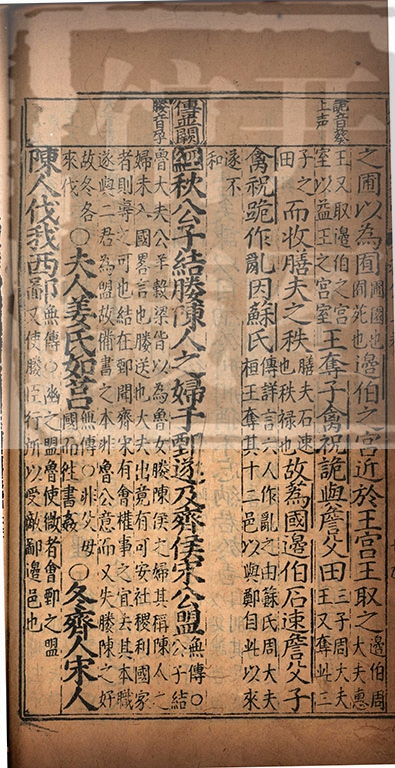 詭音葵
上声
之圃以為囿圃園也囿苑也邊伯之宮近於王宮王取之邊伯周大夫惠
王又取邊伯之宮室以益王之宮室王奪子禽祝詭與詹父田三子周大夫王又奪此三
子之田而收膳夫之秩膳夫石速也秩禄也故蒍國邊伯石速詹父子
禽祝跪作亂因蘇氏傳詳言六人作亂之由蘇氏周大夫桓王奪其十二邑以與鄭自此以來
遂不和
傳並闕
媵音孕
經秋公子結媵陳人之婦于鄄遂及齊侯宋公盟無傳○公子結
魯大夫公羊穀梁皆以為魯女媵陳侯之婦其稱陳人之婦未入國畧言也媵送也大夫出竟有可安社稷利國家
者則專之可也結在鄄聞齊宋有會權事之宜去其本職遂與二君為盟故備書之本非魯公意而又失媵陳之好
故冬各來伐○夫人姜氏如莒無傳○非父母國而往書姦○冬齊人宋人
陳人伐我西鄙無傳○幽之盟魯使微者會鄄之盟又使媵臣行所以受敵鄙邊邑也